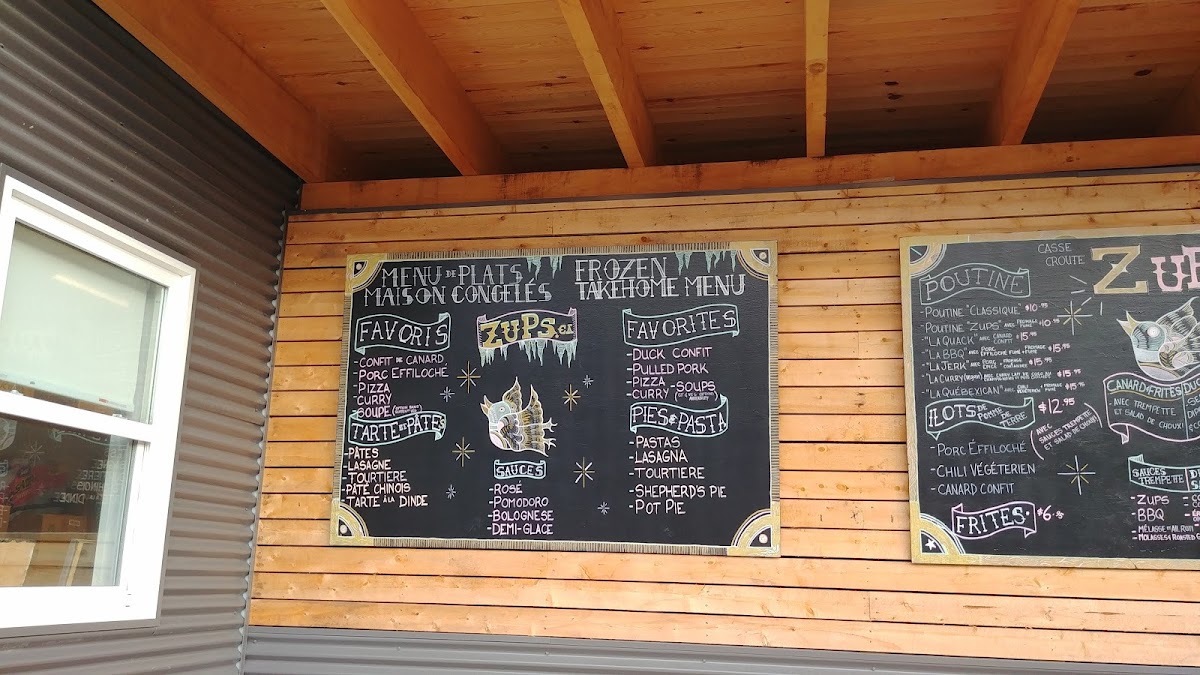 MENU DE PLATS
MAISON CONGELÉS
FROZEN
TAKEHOME MENU
ZUPS.CA
FAVORIS
- CONFIT DE CANARD
- PORC EFFILOCHE
- PIZZA
- CURRY
- SOUPE
TARTE ET PÂTES
- PÂTES
- LASAGNE
- TOURTIERE
- PÂTÉ CHINOIS
- TARTE À LA DINDE
SAUCES
- ROSÉ
- POMODORO
- BOLOGNESE
- DEMI-GLACE
FAVORITES
- DUCK CONFIT
- PULLED PORK
- PIZZA
- CURRY - SOUPS
PIES & PASTA
- PASTAS
- LASAGNA
- TOURTIERE
- SHEPHERD'S PIE
- POT PIE
CASSE
CROUTE
ZUP
POUTINE
- POUTINE "CLASSIQUE" $10.95
- POUTINE "ZUPS" AVEC FROMAGE FUMÉ $10.95
- "LA QUACK" AVEC CANARD CONFIT $15.95
- "LA BBQ" AVEC PORC EFFILOCHE FUMÉ + FROMAGE FUMÉ $15.95
- "LA JERK" AVEC PORC $15.95
- "LA CURRY $15.95
- "LA QUÉBEXICAN" AVEC CHILI VÉGÉTERIEN + FROMAGE FUMÉ $15.95
ILOTS DE POMME DE TERRE $12.95
(AVEC SAUCES TREMPETTE ET SALAD DE CHOUX)
- PORC ÉFFILOCHE
- CHILI VÉGÉTERIEN
- CANARD CONFIT
FRITES $6
CANARD & FRITES
- AVEC TREMPETTE
ET SALAD DE CHOUX
SAUCES
TREMPETTE
- ZUPS
- BBQ
- MÉLASSE ET AIL ROTI
- MOLASSES & ROASTED G